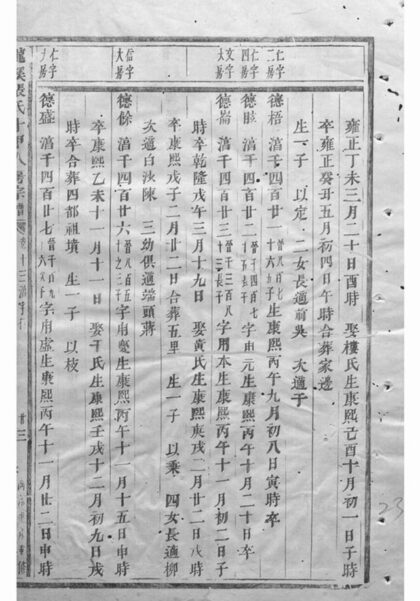 雍正丁未三月二十日酉時 娶樓氏生康熙己酉十月初一日子時
卒雍正癸丑五月初四日午時合葬家邊
生一子 以定 二女長適前吳 次適子
仁字二房
德梧 濇千四百廿一 生康熙丙午九月初八日寅時卒
仁字四房
德晐 濇千四百廿二 字用元生康熙丙午十月二十日卒
文字大房
德崙 濇千四百廿三 字用本生康熙丙午十一月初二日子
時卒乾隆戊午三月十九日 娶黃氏生康熙庚戌二月廿二日戌時
卒康熙戊子二月廿二日合葬五里 生一子 以乘 四女長適柳
次適白沙陳 三幼俱適端頭蔣
信字大房
德餘 濇千四百廿六 字用慶生康熙丙午十一月十五日申時
卒康熙乙未十一月十一日 娶于氏生康熙壬戌十二月初九日戌
時卒合葬四都祖墳 生一子 以枝
仁字
德盛 濇千四百廿七 字用虛生康熙丙午十一月廿二日申時
龍溪張氏十甲八房宗譜
廿三
23